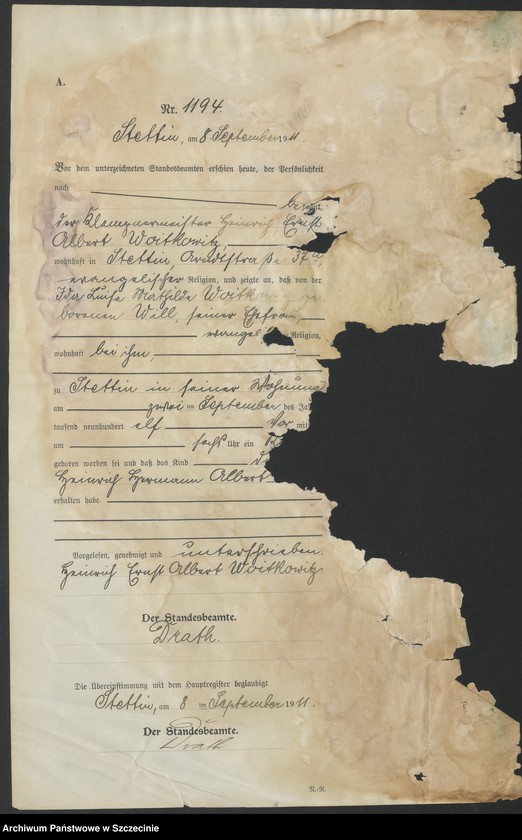 A.
Nr. 1194.
Stettin, am 8 September 1911.
Vor dem unterzeichneten Standesbeamten erschien heute, der Persönlichkeit
nach
der Klempnermeister Heinrich Ernst
Albert Woitkowitz,
wohnhaft in Stettin, Arndtstraße 37
evangelischer Religion, und zeigte an, daß von der
Ida Luise Mathilde Woitko ge
borenen Will, seiner Ehefrau,
evangel Religion,
wohnhaft bei ihm,
zu Stettin in seiner Wohnung
am zwei ten September des Ja
tausend neunhundert elf Vor mit
um sechs Uhr ein
geboren worden sei und daß das Kind
Heinrich Hermann Albert
erhalten habe.
Vorgelesen, genehmigt und unterschrieben.
Heinrich Ernst Albert Woitkowitz
Der Standesbeamte.
Drath.
Die Übereinstimmung mit dem Hauptregister beglaubigt
Stettin, am 8 ten September 1911.
Der Standesbeamte.
Drath
N.-R.
Archiwum Państwowe w Szczecinie